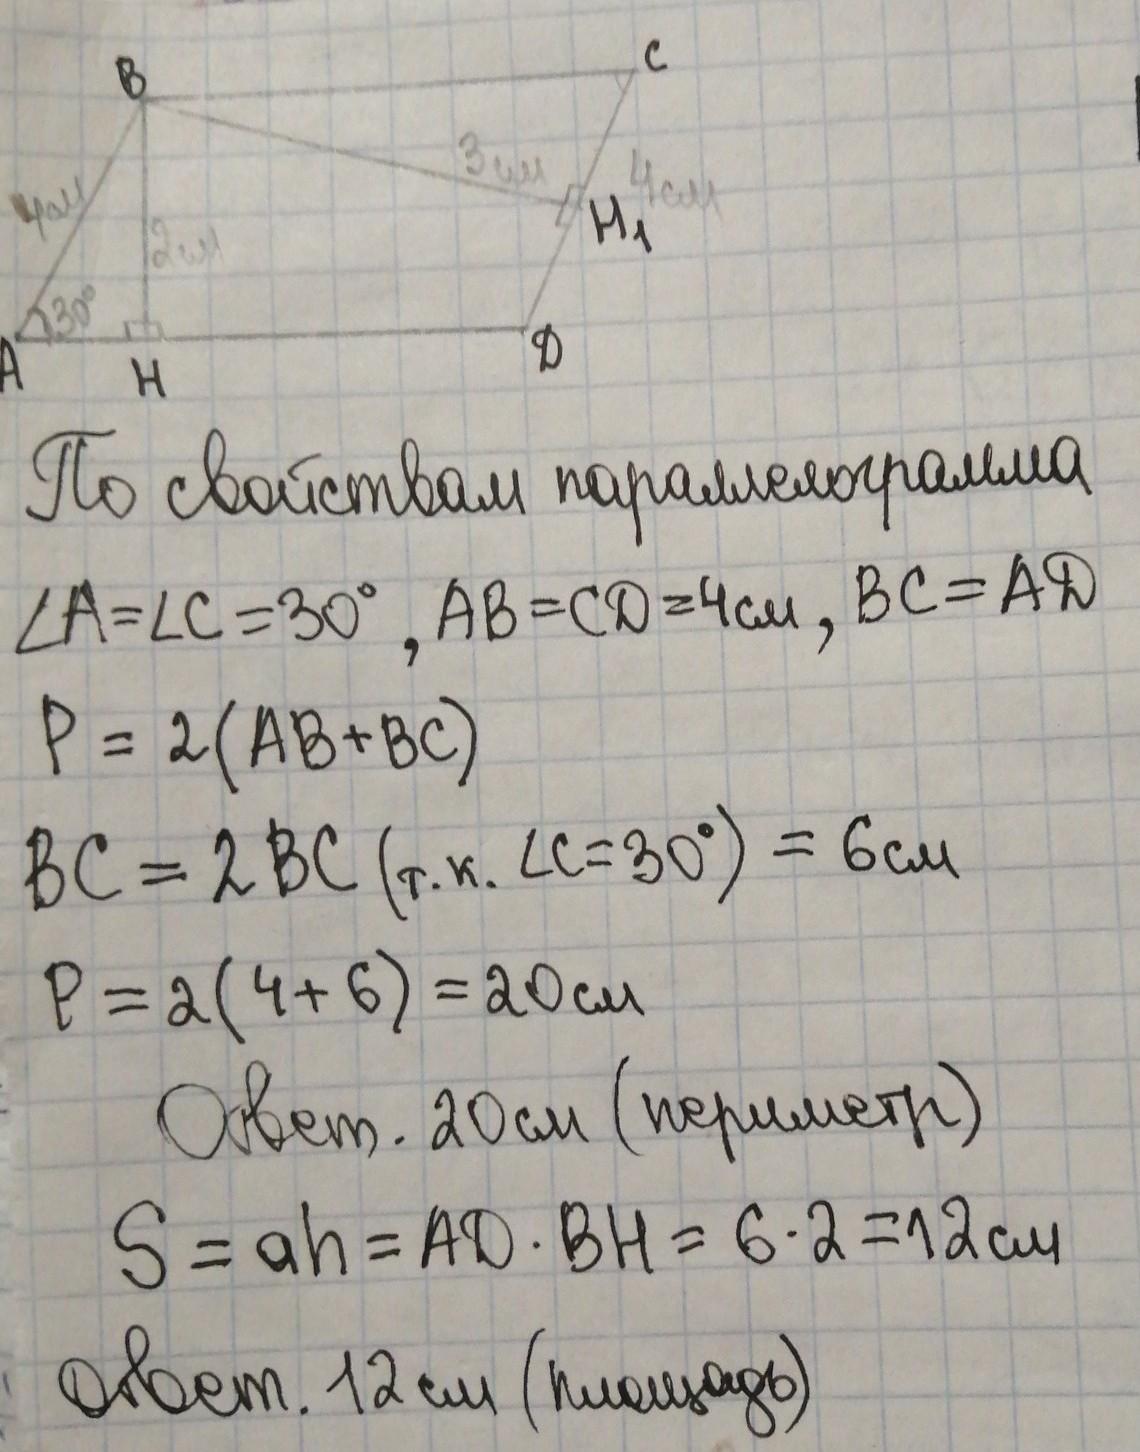 B
C
3 см
4 см
4см
H₁
2см
30°
A
H
D
По свойствам параллелограмма
∠A=∠C=30°, AB=CD=4см, BC=AD
P = 2(AB+BC)
BC = 2BC (т.к. ∠C=30°) = 6см
P = 2(4+6) = 20см
Ответ. 20см (периметр)
S = ah = AD · BH = 6·2 = 12см
Ответ. 12см (площадь)